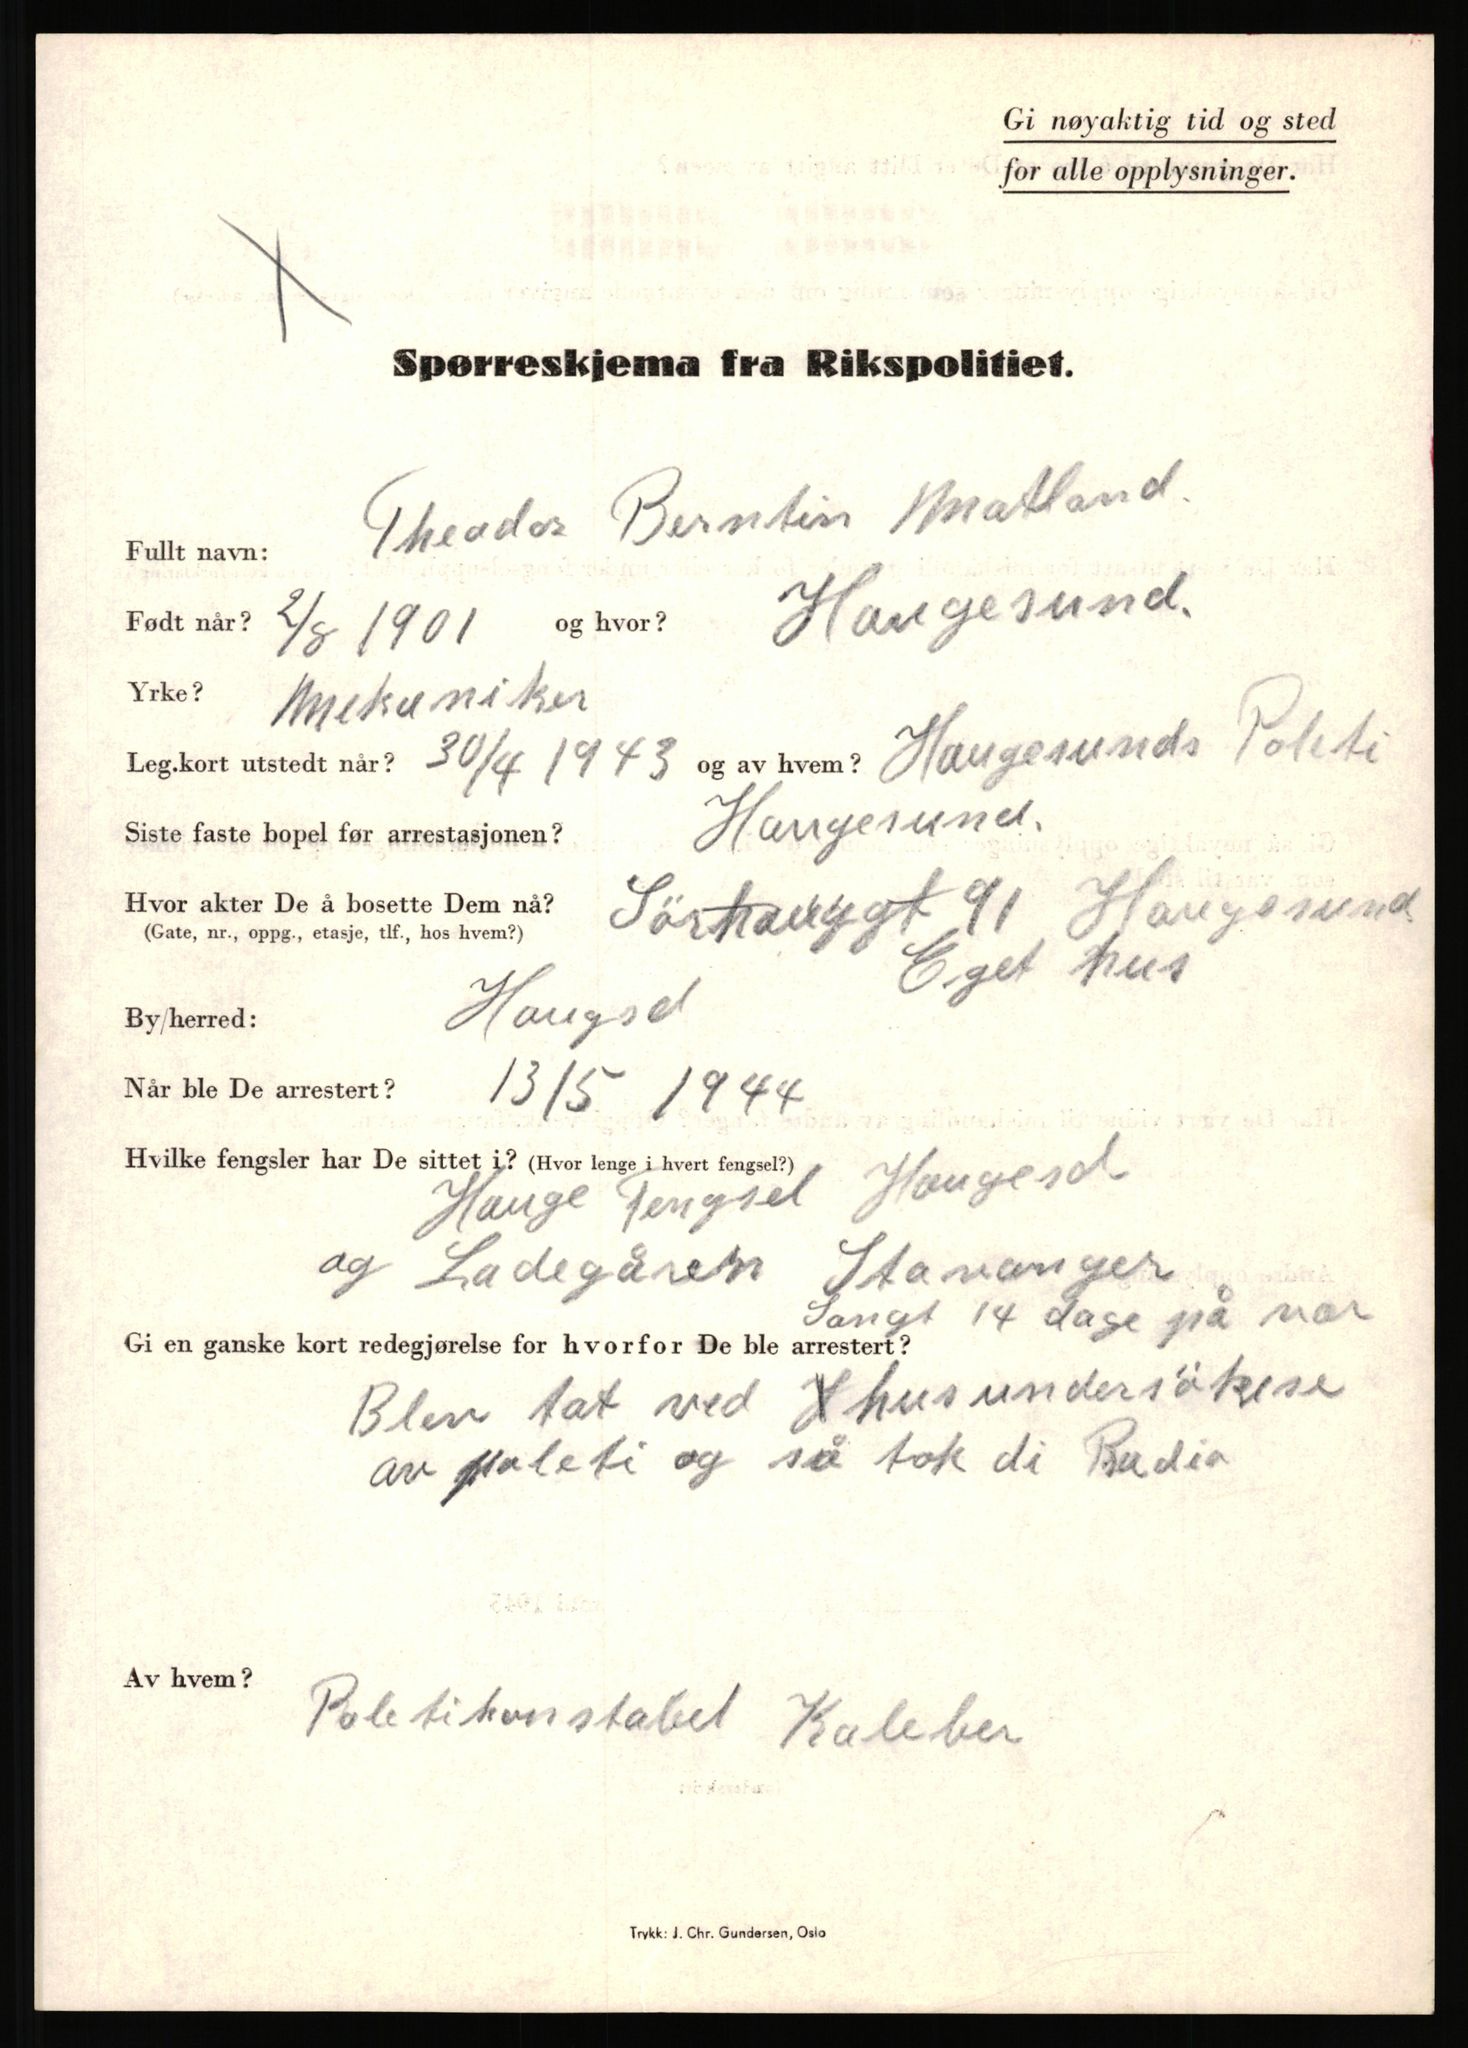 Gi nøyaktig tid og sted
for alle opplysninger.
Spørreskjema fra Rikspolitiet.
Fullt navn: Theodor Berntin Matland.
Født når? 2/8 1901 og hvor? Haugesund.
Yrke? Mekaniker
Leg.kort utstedt når? 30/4 1943 og av hvem? Haugesunds Poleti
Siste faste bopel før arrestasjonen? Haugesund.
Hvor akter De å bosette Dem nå? Sörhauggt 91 Haugesund
(Gate, nr., oppg., etasje, tlf., hos hvem?) Eget hus
By/herred: Haugsd
Når ble De arrestert? 13/5 1944
Hvilke fengsler har De sittet i? (Hvor lenge i hvert fengsel?)
Hauge Fengsel Haugesd
og Ladegåren Stavanger
14 dage på vær
Gi en ganske kort redegjørelse for hvorfor De ble arrestert?
Blev tat ved husundersökese
av poleti og så tok di Radio
Av hvem? Poletikonstabel Kaleber
Trykk: J. Chr. Gundersen, Oslo